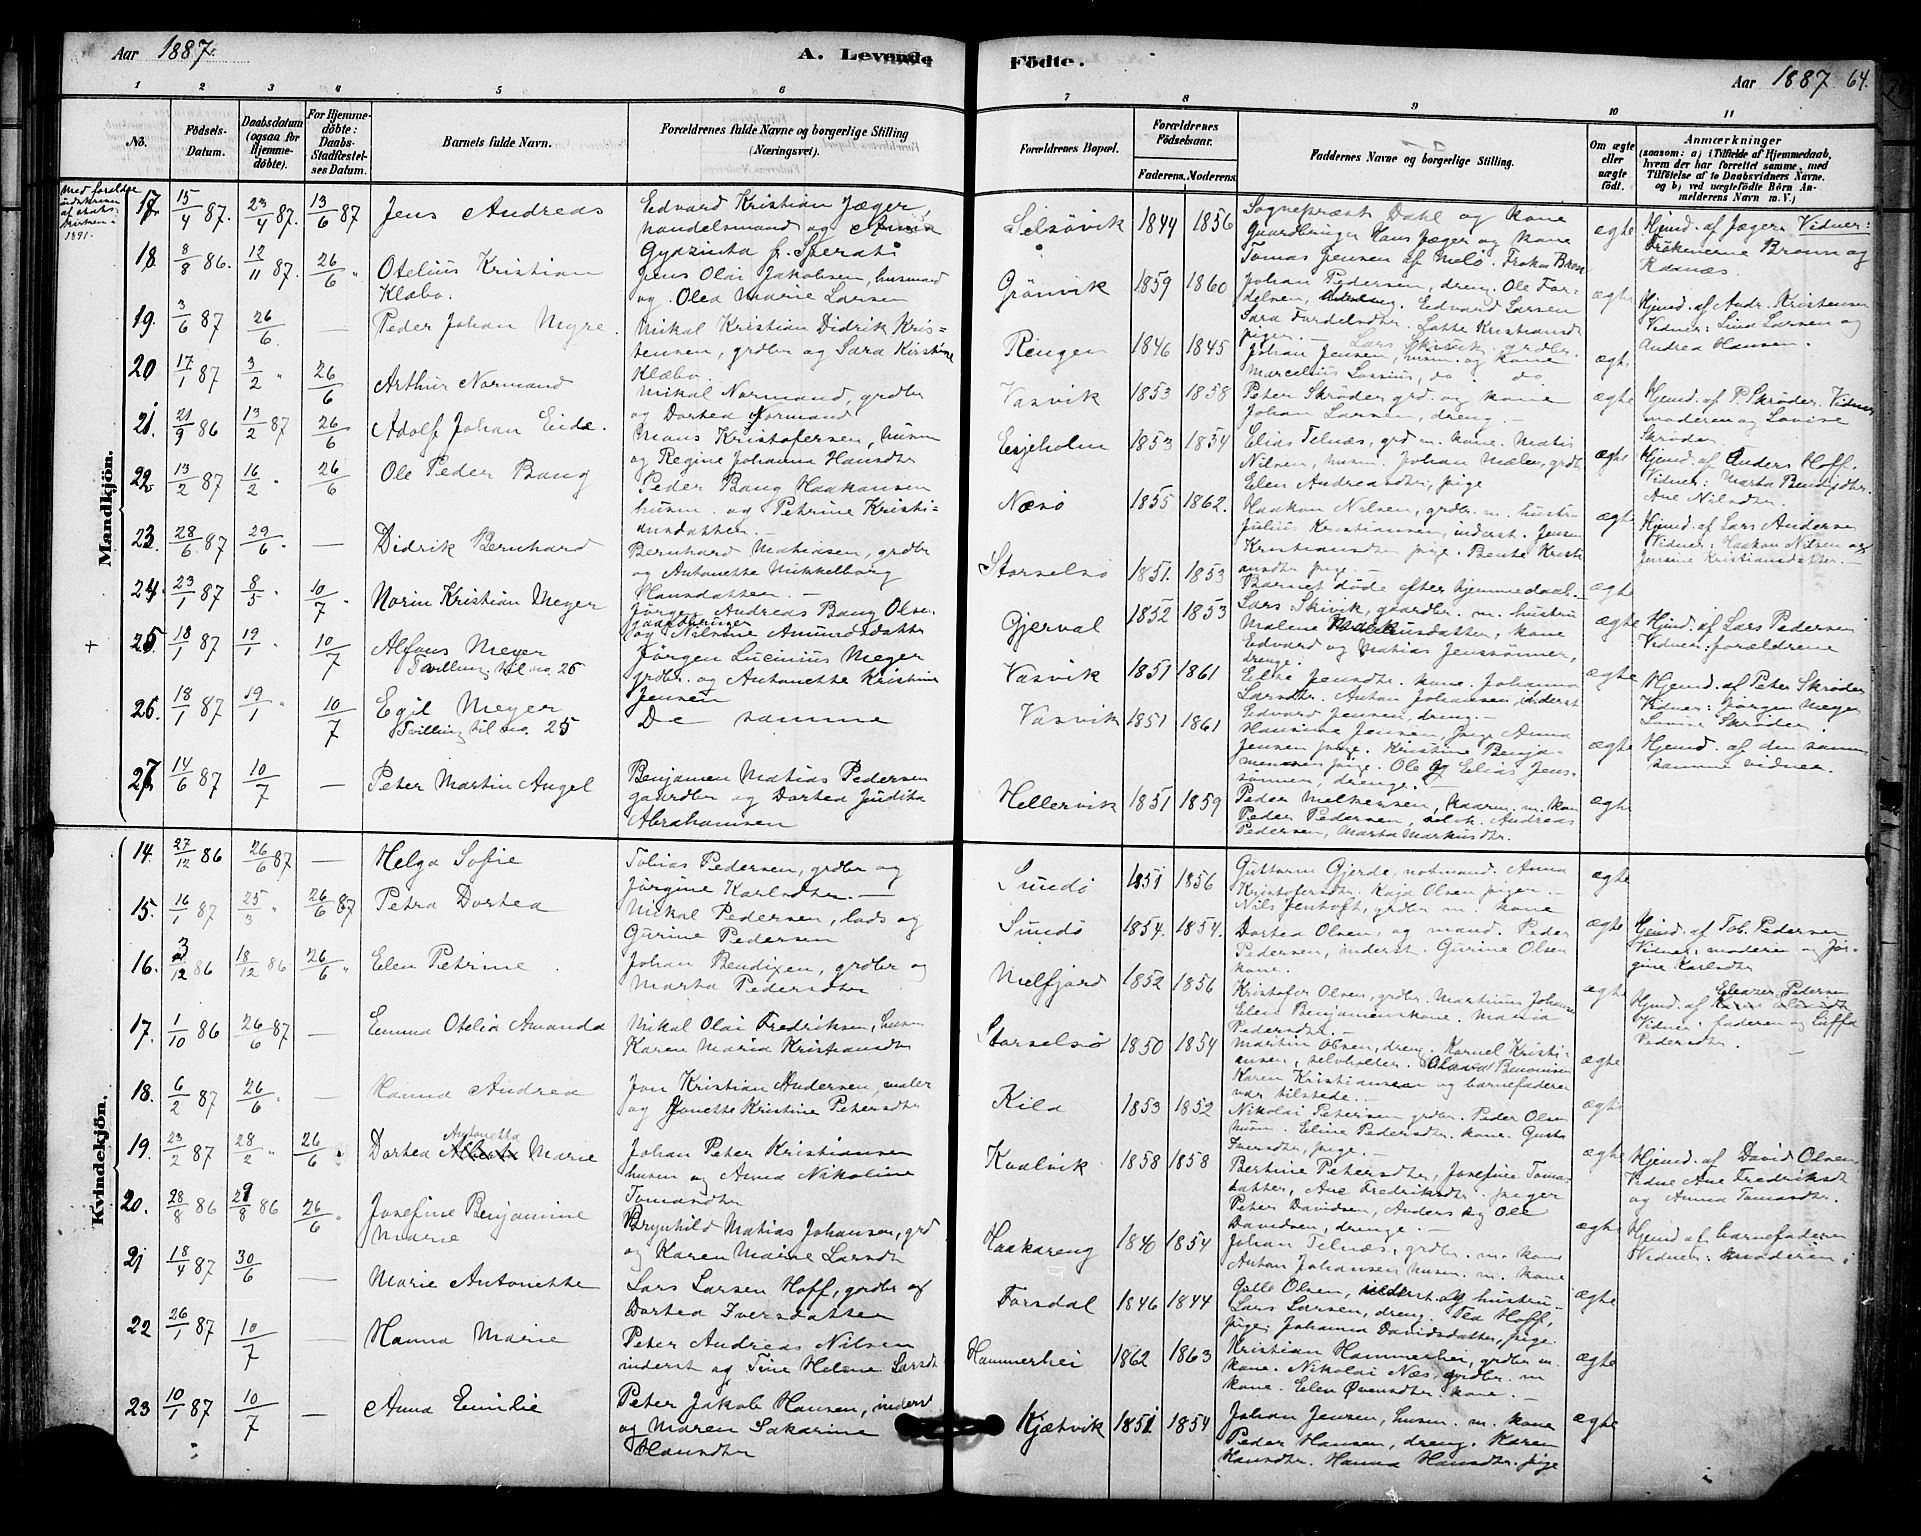 Aar 1887.
A. Levende Födte.
Aar 1887 64.
1 2 3 4 5 6 7 8 9 10 11
No.
Födsels-Datum.
Daabsdatum (ogsaa for Hjemmedöbte).
For Hjemmedöbte: Daabs-Stadfæstelses Datum.
Barnets fulde Navn.
Forældrenes fulde Navne og borgerlige Stilling (Næringsvei).
Forældrenes Bopæl.
Forældrenes Födselsaar.
Faderens. Moderens.
Faddernes Navne og borgerlige Stilling.
Om ægte eller uægte födt.
Anmærkninger
(saasom: a) i Tilfælde af Hjemmedaab, hvem der har forrettet samme, med Tilföielse af to Daabsvidners Navne. og b) ved uægtefödte Börn Anmelderens Navn m. V.)
Mandkjön.
17. 15/4 87. 23/4 87. 13/6 87 Jens Andreas
Edvard Kristian Jæger, handelsmand og Anna Gydzinta f. Sperati
Selsövik 1844 1856
Sognepræst Dahl og kone Gaardbruger Hans Jæger og kone Tomas Jensen af Melö.
ægte
Hjemd. af Jæger. Vidner: Frökenerne Bronn og
18. 8/8 86. 12/11 87. 26/6 " Otelius Kristian Klæbo.
Jens Olai Jakobsen, husmand og Olea Marie Larsen
Grönvik 1859 1860
Johan Pedersen, dreng. Ole Fordelsen, Edvard Larsen Sara Fordelsdtr.
ægte
Hjemd. af Andr. Kristensen Vidner: Lina Larsen og Andrea Hansen.
19. 3/6 87 26/6. — Peder Johan Myre.
Mikal Kristian Didrik Kristensen, grdbr og Sara Kirstine Klæbo.
Rengen 1846 1845
Johan Jensen, husm. og kone
ægte
20 17/1 87 3/2 " 26/6 Arthur Normand
Mikal Normand, grdbr og Dortea Normand
Vasvik 1853 1858
Peter Skröder grd. og kone Johan Larsen, dreng. —
ægte
Hjemd. af P. Skröder. Vidner moderen og Lovise Skröder.
21. 21/9 86 13/2 87 26/6 Adolf Johan Eide.
Mons Kristofersen, husm og Regine Johanna Hansdtr
Esjeholm 1853 1854
Elias Telnæs, grd m. kone. Matis Nilsen, husm. Johan Mælen, grdb. Elen Andreasdtr, pige
ægte
Hjemd. af Anders Hoff. Vidner: Marta Ane Nilsdtr.
22. 13/2 87 16/2 " 26/6 Ole Peder Bang
Peder Bang Haakonsen husm. og Petrine Kristiansdatter. —
Næsö 1855 1862.
Haakon Nilsen, grdbr. m. hustru Julius Kristiansen, inderst. Jensine Kristiansdtr pige. Bente Kristiansdtr pige. —
ægte
Hjemd. af Lars Andersen Vidner: Haakon Nilsen og Jensine Kristiansdatter. —
23. 28/6 87 29/6 " — Didrik Bernhard
Bernhard Matiasen, grdbr og Antonette Mikkelborg Hansdatter. —
Storselsö 1851. 1853
Barnet döde efter hjemmedaab. —
ægte
24. 23/1 87 8/5 " 10/7 " Norin Kristian Meyer
Jörgen Andreas Bang Olsen gaardbruger og Nilsine Amundsdatter
Gjerval 1852 1853
Lars Skivik, gaardbr. m. hustru Malene Markusdatter, kone Edvard og Matias Jenssönner, drenge.
ægte
Hjemd. af Lars Pedersen Vidner: forældrene
+ 25. 18/1 87 19/1 " 10/7 Alfons Meyer
Tvilling til no. 26
Jörgen Lucinius Meyer grdbr. og Antonette Kristine Jensen
Vasvik 1851 1861
Johanna Larsdtr. Anton Johansen, inderst Edvard Jensen, dreng. —
ægte
Hjemd. af Peter Skröder Vidner: Jörgen Meyer Lovise Skröder.
26. 18/1 87 19/1 " 10/7 Egil Meyer
Tvilling til no. 25
De samme
Vasvik 1851 1861
Hansine Jensen, pige Anna Jensen pige. Kristine Benjamensen pige. Ole og Elias Jenssönner, drenge. —
ægte
Hjemd. af den samme samme vidner.
27. 14/6 87 10/7 — Peter Martin Angel
Benjamen Matias Pedersen gaardbr og Dortea Judita Abrahamsen
Hellervik 1851 1859
Peder Melkersen, m. kone Peder Pedersen, selvh. Andreas Pedersen, Marta Markusdtr.
ægte
Kvindekjön.
14. 27/12 86 26/6 87 — Helga Sofie
Tobias Pedersen, grdbr og Jörgine Karlsdtr. —
Sundö 1851 1856
Guttorm Gjerde, notmand. Anna Kristofersdtr. Kaja Olsen piger. —
ægte
15. 16/1 87 25/3 " 26/6 87 Petra Dortea
Mikal Pedersen, lods og Gurine Pedersen
Sundö 1854. 1854.
Nils Jentoft, grdbr m. kone Dortea Olsen, og mand. Peder Pedersen, inderst. Gurine Olsen kone.
ægte
Hjemd. af Tob. Pedersen Vidner: moderen og Jörgine Karlsdtr
16. 3/12 86 18/12 86 26/6 " Elen Petrine
Johan Bendixen, grdbr og Marta Pedersdtr
Melfjord 1852 1856
Kristofer Olsen, grdbr. Martinus Johansen Elen Benjamensen kone. Maria Pedersdtr. —
ægte
Hjemd. af Eleazer Pedersen Vidner: faderen og Pedersdtr.
17. 1/10 86 26/6 87 — Emma Otelia Amanda
Mikal Olai Fredriksen, husm Karen Maria Kristiansdtr
Storselsö 1850 1854
Martin Olsen, dreng. Kornel Kristiansen, selvholder. Karen Kristiansen og barnefaderen var tilstede. —
ægte
18. 6/2 87 26/6 " — Hanna Andrea
Jon Kristian Andersen, maler og Jonette Kristine Petersdtr
Kila 1853 1852
Nikolai Petersen grdbr. Peder Olsen husm. Eline Pedersdtr. kone. Iversdtr, pige. —
ægte
19. 23/2 87 28/2 " 26/6 Dortea Antonetta Marie
Johan Peter Kristiansen husm og Anna Nikoline Tomasdtr
Kvalvik 1858 1858
Bertine Petersdtr, Josefine Tomasdatter, Ane Fredriksdtr. piger Peter Davidsen, Anders og Ole Davidsen, drenge. —
ægte
Hjemd. af David Olsen Vidne Ane Fredriksdt og Anna Tomasdtr.
20. 28/8 86 29/8 86 26/6 " Josefine Benjamine Marie
Brynhild Matias Johansen, grd og Karen Marie Larsdt
Haakareng 1840 1854
Johan Telnæs, grdbr. m. kone Anton Johansen husm. m. kone
ægte
Hjemd. af barnefaderen Vidner: moderen
21 18/4 87 30/6 — Marie Antonette
Lars Larsen Hoff, grdbr og Dortea Iversdatter
Forsdal 1846 1844
Olsen, inderst og hustru. Lars Larsen, dreng. Tea Hoff, pige; Johanna Davidsdatter, pige.
ægte
22 26/1 87 10/7 — Hanna Marie
Peter Andreas Nilsen inderst og Tine Helene Larsdt
Hammerhei 1862 1863
Kristian Hammerhei, grdbr m. kone. Nikolai Næs, grdbr. m kone. Elen kone. —
ægte
23 10/1 87 10/7 — Anna Emilie
Peter Jakob Hansen, inderst og Maren Sakarine Hansdtr
Kjætvik 1851 1854
Johan Jensen, husm. m. kone Peder Hansen, dreng. Karen Hansdtr. Hanna Hansdtr. pige
ægte